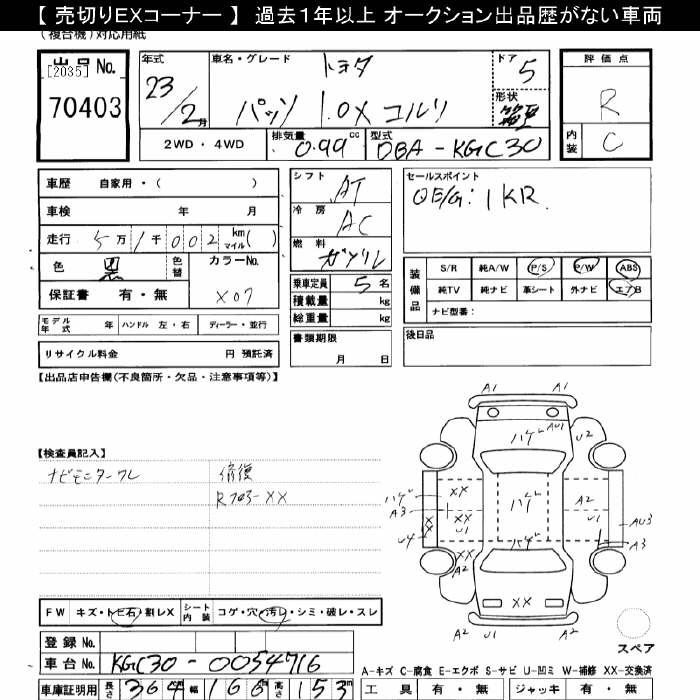 【 売切りEXコーナー 】 過去1年以上 オークション出品歴がない車両
(複合機)対応用紙
出品 No.
[2035]
70403
年式
23/2月
車名・グレード
トヨタ
パッソ 1.0X
ドア
5
形状
評価点
R
内装
C
2WD・4WD
排気量
0.99 cc
型式
DBA-KGC30
車歴 自家用・( )
車検 年 月
走行 5万1千002 km マイル( )
色 黒 色替
カラーNo.
X07
保証書 有・無
シフト
AT
冷房
AC
燃料
ガソリン
乗車定員 5名
積載量 kg
総重量 kg
セールスポイント
OE/G:1KR.
装備品
S/R 純A/W P/S P/W ABS
純TV 純ナビ 革シート 外ナビ エアB
ナビ型番:
モデル年式 年 ハンドル 左・右 ディーラー・並行
リサイクル料金 円 預託済
書類期限
月 日
後日品
【出品店申告欄(不良箇所・欠品・注意事項等)】
【検査員記入】
ナビモニターワレ
修復
Rフロアー XX
A1 A1
ハゲ AU1 U2
ハゲ XX
A3 XX ハゲ A2
XX U1 U1 AU3
U4 ハゲ A3
XX
A2
XX
A2 U1 A2
スペア
FW キズ・トビ石・割レX シート内装 コゲ・穴・汚レ・シミ・破レ・スレ
登録 No.
車台 No. KGC30-0054716
車庫証明用 長さ 364 幅 166 高さ 153
A-キズ C-腐食 E-エクボ S-サビ U-凹ミ W-補修 XX-交換済
工具 有・無 ジャッキ 有・無